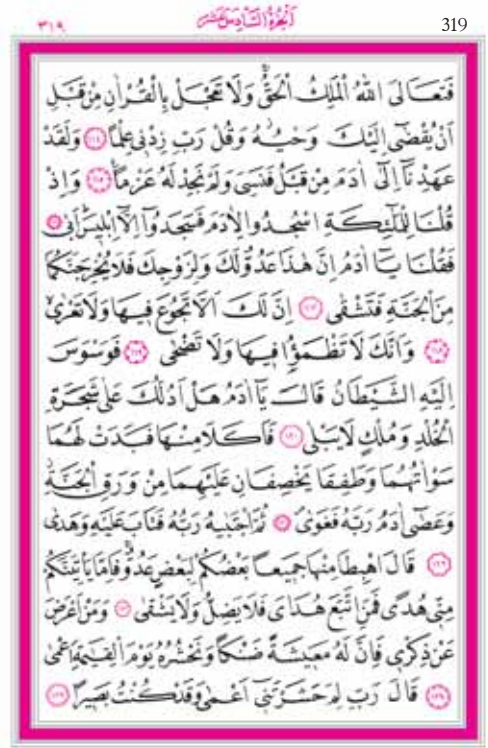 ٣١٩ اَلْجُزْءُ السَّادِسُ عَشَرَ 319
فَتَعَالَى اللّٰهُ الْمَلِكُ الْحَقُّۚ وَلَا تَعْجَلْ بِالْقُرْاٰنِ مِنْ قَبْلِ
اَنْ يُقْضٰٓى اِلَيْكَ وَحْيُهُۘ وَقُلْ رَبِّ زِدْنٖى عِلْمًا ﴿١١٤﴾ وَلَقَدْ
عَهِدْنَٓا اِلٰٓى اٰدَمَ مِنْ قَبْلُ فَنَسِىَ وَلَمْ نَجِدْ لَهُ عَزْمًا ﴿١١٥﴾ وَاِذْ
قُلْنَا لِلْمَلٰٓئِكَةِ اسْجُدُوا لِاٰدَمَ فَسَجَدُٓوا اِلَّٓا اِبْلٖيسَ اَبٰى ﴿١١٦﴾
فَقُلْنَا يَٓا اٰدَمُ اِنَّ هٰذَا عَدُوٌّ لَكَ وَلِزَوْجِكَ فَلَا يُخْرِجَنَّكُمَا
مِنَ الْجَنَّةِ فَتَشْقٰى ﴿١١٧﴾ اِنَّ لَكَ اَلَّا تَجُوعَ فٖيهَا وَلَا تَعْرٰى
﴿١١٨﴾ وَاَنَّكَ لَا تَظْمَؤُ۬ا فٖيهَا وَلَا تَضْحٰى ﴿١١٩﴾ فَوَسْوَسَ
اِلَيْهِ الشَّيْطَانُ قَالَ يَٓا اٰدَمُ هَلْ اَدُلُّكَ عَلٰى شَجَرَةِ
الْخُلْدِ وَمُلْكٍ لَا يَبْلٰى ﴿١٢٠﴾ فَاَكَلَا مِنْهَا فَبَدَتْ لَهُمَا
سَوْاٰتُهُمَا وَطَفِقَا يَخْصِفَانِ عَلَيْهِمَا مِنْ وَرَقِ الْجَنَّةِۘ
وَعَصٰٓى اٰدَمُ رَبَّهُ فَغَوٰى ﴿١٢١﴾ ثُمَّ اجْتَبٰيهُ رَبُّهُ فَتَابَ عَلَيْهِ وَهَدٰى
﴿١٢٢﴾ قَالَ اهْبِطَا مِنْهَا جَمٖيعًا بَعْضُكُمْ لِبَعْضٍ عَدُوٌّۚ فَاِمَّا يَاْتِيَنَّكُمْ
مِنّٖى هُدًى فَمَنِ اتَّبَعَ هُدَاىَ فَلَا يَضِلُّ وَلَا يَشْقٰى ﴿١٢٣﴾ وَمَنْ اَعْرَضَ
عَنْ ذِكْرٖى فَاِنَّ لَهُ مَعٖيشَةً ضَنْكًا وَنَحْشُرُهُ يَوْمَ الْقِيٰمَةِ اَعْمٰى
﴿١٢٤﴾ قَالَ رَبِّ لِمَ حَشَرْتَنٖٓى اَعْمٰى وَقَدْ كُنْتُ بَصٖيرًا ﴿١٢٥﴾